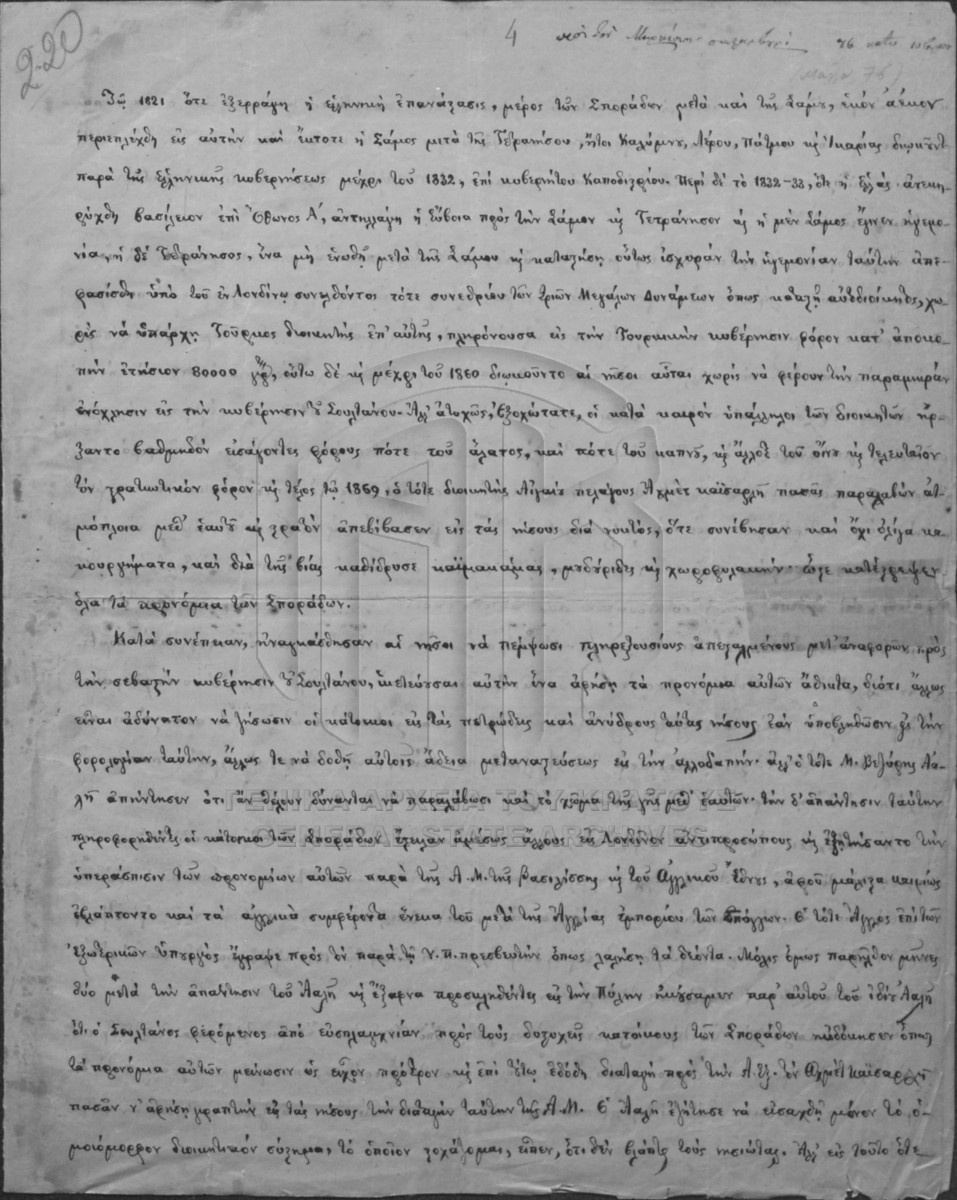 220
4
Τῷ 1821 ὅτε ἐξερράγη ἡ ἑλληνικὴ ἐπανάστασις, μέρος τῶν Σποράδων μετὰ καὶ τῆς Σάμου, ἑκὸν ἀέκον
περιεπλέχθη εἰς αὐτὴν καὶ ἔκτοτε ἡ Σάμος μετὰ τῆς Τετρανήσου, ἤτοι Καλύμνου, Λέρου, Πάτμου κὶ Ἰκαρίας διῳκεῖτο
παρὰ τῆς ἑλληνικῆς κυβερνήσεως μέχρι τοῦ 1832, ἐπὶ κυβερνήτου Καποδιστρίου. Περὶ δὲ τὸ 1832-33, ὅτε ἡ Ἑλλὰς ἀνεκη-
ρύχθη βασίλειον ἐπὶ Ὄθωνος Α΄, ἀντηλλάγη ἡ Εὔβοια πρὸς τὴν Σάμον κὶ Τετράνησον κὶ ἡ μὲν Σάμος ἔγινεν ἡγεμο-
νία, ἡ δὲ Τετράνησος, ἵνα μὴ ἑνωθῇ μετὰ τῆς Σάμου κὶ καταστήσῃ οὕτως ἰσχυρὰν τὴν ἡγεμονίαν ταύτην ἀπε-
φασίσθη ὑπὸ τοῦ ἐν Λονδίνῳ συνελθόντος τότε συνεδρίου τῶν τριῶν Μεγάλων Δυνάμεων ὅπως καταστῇ αὐτοδιοίκητος, χω-
ρὶς νὰ ὑπάρχῃ Τοῦρκος διοικητὴς ἐπ' αὐτῆς, πληρόνουσα εἰς τὴν Τουρκικὴν κυβέρνησιν φόρον κατ' ἀποκο-
πὴν ἐτήσιον 80000 γρ, οὕτω δὲ κὶ μέχρι τοῦ 1860 διῳκοῦντο αἱ νῆσοι αὗται χωρὶς νὰ φέρουν τὴν παραμικρὰν
ἐνόχλησιν εἰς τὴν κυβέρνησιν τοῦ Σουλτάνου. Ἀλλ' ἀτυχῶς, ἐξοχώτατε, οἱ κατὰ καιρὸν ὑπάλληλοι τῶν διοικητῶν ἤρ-
ξαντο βαθμηδὸν εἰσάγοντες φόρους πότε τοῦ ἅλατος, καὶ πότε τοῦ καπνοῦ, κὶ ἄλλοτε τοῦ οἴνου κὶ τελευταῖον
τὸν στρατιωτικὸν φόρον κὶ τέλος τῷ 1869, ὁ τότε διοικητὴς Αἰγαίου πελάγους Ἀχμὲτ καϊσαρλῆ πασᾶς παραλαβὼν ἀτ-
μόπλοια μεθ' ἑαυτοῦ κὶ στρατὸν ἀπεβίβασεν εἰς τὰς νήσους διὰ νυκτός, ὅτε συνέβησαν καὶ ὄχι ὀλίγα κα-
κουργήματα, καὶ διὰ τῆς βίας καθίδρυσε καϊμακάμας, μουδύριδες κὶ χωροφυλακήν· ὥστε κατέστρεψεν
ὅλα τὰ προνόμια τῶν Σποράδων.
Κατὰ συνέπειαν, ἠναγκάσθησαν αἱ νῆσοι νὰ πέμψωσι πληρεξουσίους ἀπεσταλμένους μετ' ἀναφορῶν πρὸς
τὴν σεβαστὴν κυβέρνησιν τοῦ Σουλτάνου, ἱκετεύουσαι αὐτὴν ἵνα ἀφήσῃ τὰ προνόμια αὐτῶν ἄθικτα, διότι ἄλλως
εἶναι ἀδύνατον νὰ ζήσωσιν οἱ κάτοικοι εἰς τὰς πετρώδεις καὶ ἀνύδρους ταύτας νήσους ἐὰν ὑποβληθῶσιν εἰς τὴν
φορολογίαν ταύτην, ἄλλως τε νὰ δοθῇ αὐτοῖς ἄδεια μεταναστεύσεως εἰς τὴν ἀλλοδαπήν· ἀλλ' ὁ τότε Μ. Βεζύρης Ἀα-
λῆ ἀπήντησεν ὅτι ἂν θέλουν δύνανται νὰ παραλάβωσι καὶ τὸ χῶμα τῆς γῆς μεθ' ἑαυτῶν· τὴν δ' ἀπάντησιν ταύτην
πληροφορηθέντες οἱ κάτοικοι τῶν Σποράδων ἔστειλαν ἀμέσως ἄλλους εἰς Λονδῖνον ἀντιπροσώπους κὶ ἐζητήσαντο τὴν
ὑπεράσπισιν τῶν προνομίων αὐτῶν παρὰ τῆς Α.Μ. τῆς βασιλίσσης κὶ τοῦ Ἀγγλικοῦ Ἔθνους, ἀφοῦ μάλιστα καιρίως
ἐβλάπτοντο καὶ τὰ ἀγγλικὰ συμφέροντα ἕνεκα τοῦ μετὰ τῆς Ἀγγλίας ἐμπορίου τῶν Σπόγγων. Ὁ τότε Ἄγγλος ἐπὶ τῶν
Ἐξωτερικῶν ὑπουργὸς ἔγραψε πρὸς τὸν παρὰ τῇ Υ.Π. πρεσβευτὴν ὅπως λαλήσῃ τὰ δέοντα. Μόλις ὅμως παρῆλθον μῆνες
δύο μετὰ τὴν ἀπάντησιν τοῦ Ἀαλῆ κὶ ἔξαφνα προσκληθέντες εἰς τὴν Πύλην ἠκούσαμεν παρ' αὐτοῦ τοῦ ἰδίου Ἀαλῆ
ὅτι ὁ Σουλτάνος φερόμενος ἀπὸ εὐσπλαγχνίαν πρὸς τοὺς δυστυχεῖς κατοίκους τῶν Σποράδων ηὐδόκησεν ὅπως
τὰ προνόμια αὐτῶν μείνωσιν ὡς εἶχον πρότερον κὶ ἐπὶ τούτῳ ἐδόθη διαταγὴ πρὸς τὴν Α.Εξ. τὸν Ἀχμὲτ καϊσαρλῆ
πασᾶν ν' ἀφήσῃ γραπτὴν εἰς τὰς νήσους τὴν διαταγὴν ταύτην τῆς Α.Μ. Ὁ Ἀαλῆ ἐζήτησε νὰ εἰσαχθῇ μόνον τὸ ὁ-
μοιόμορφον διοικητικὸν σύστημα, τὸ ὁποῖον στοχάζομαι, εἶπεν, ὅτι δὲν βλάπτει τοὺς νησιώτας. Ἀλλ' εἰς τοῦτο ὅτε
ΓΕΝΙΚΑ ΑΡΧΕΙΑ ΤΟΥ ΚΡΑΤΟΥΣ
GENERAL STATE ARCHIVES